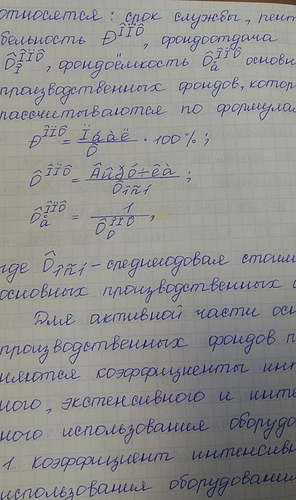 относятся: срок службы, рент
бельность Ð ÎÏÔ, фондоотдача
Ô Î ÎÏÔ, фондоёмкость Ô å ÎÏÔ основн
производственных фондов, котор
рассчитываются по формулам
Ð ÎÏÔ = Ïáàë / Ô · 100%;
Ô ÎÏÔ = Âûðó÷êà / Ô îñí;
Ô å ÎÏÔ = 1 / Ô Î ÎÏÔ,
где Ô îñí - среднегодовая стоим
основных производственных
Для активной части осн
производственных фондов п
няются коэффициенты инт
ного, экстенсивного и инте
ного использования оборудо
1. Коэффициент интенсивн
использования оборудования